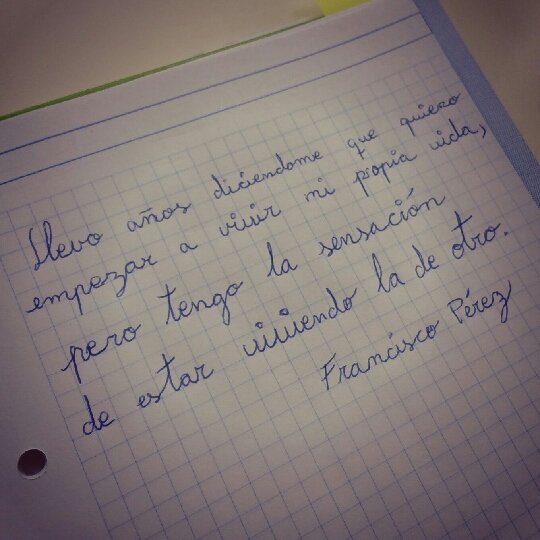 Llevo años diciéndome que quiero
empezar a vivir mi propia vida,
pero tengo la sensación
de estar viviendo la de otro.
Francisco Pérez